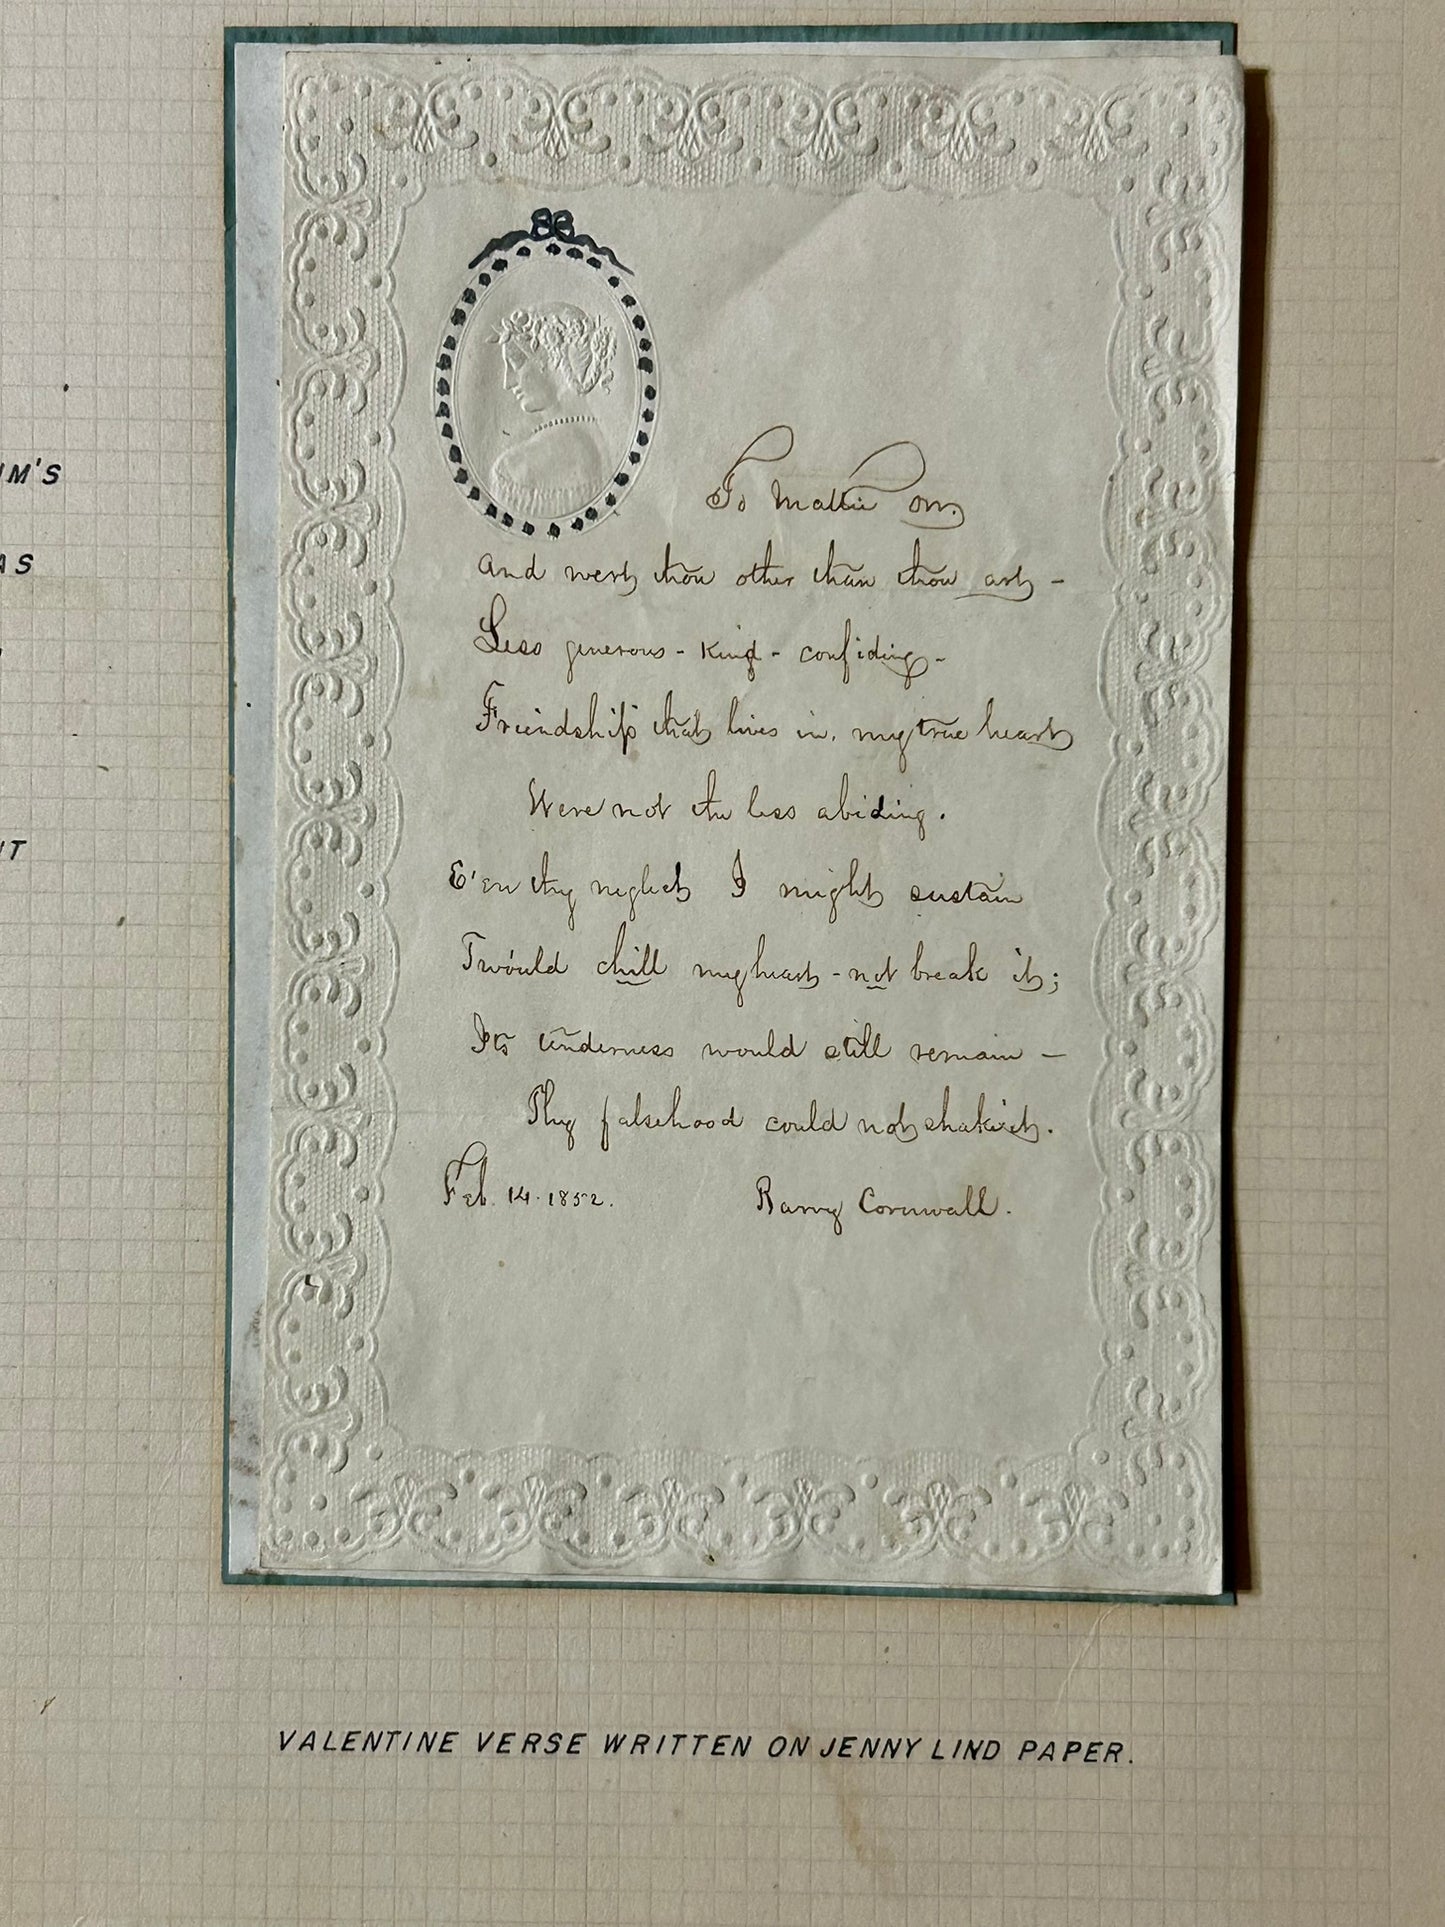 M'S
AS
T
To Mattie Orr.
And wert thou other than thou art -
Less generous - kind - confiding -
Friendship that lives in my true heart
Were not the less abiding.
E'en thy neglect I might sustain
T'would chill my heart - not break it;
Its tenderness would still remain —
Thy falsehood could not shake it.
Feb. 14. 1852.
Barry Cornwall.
VALENTINE VERSE WRITTEN ON JENNY LIND PAPER.